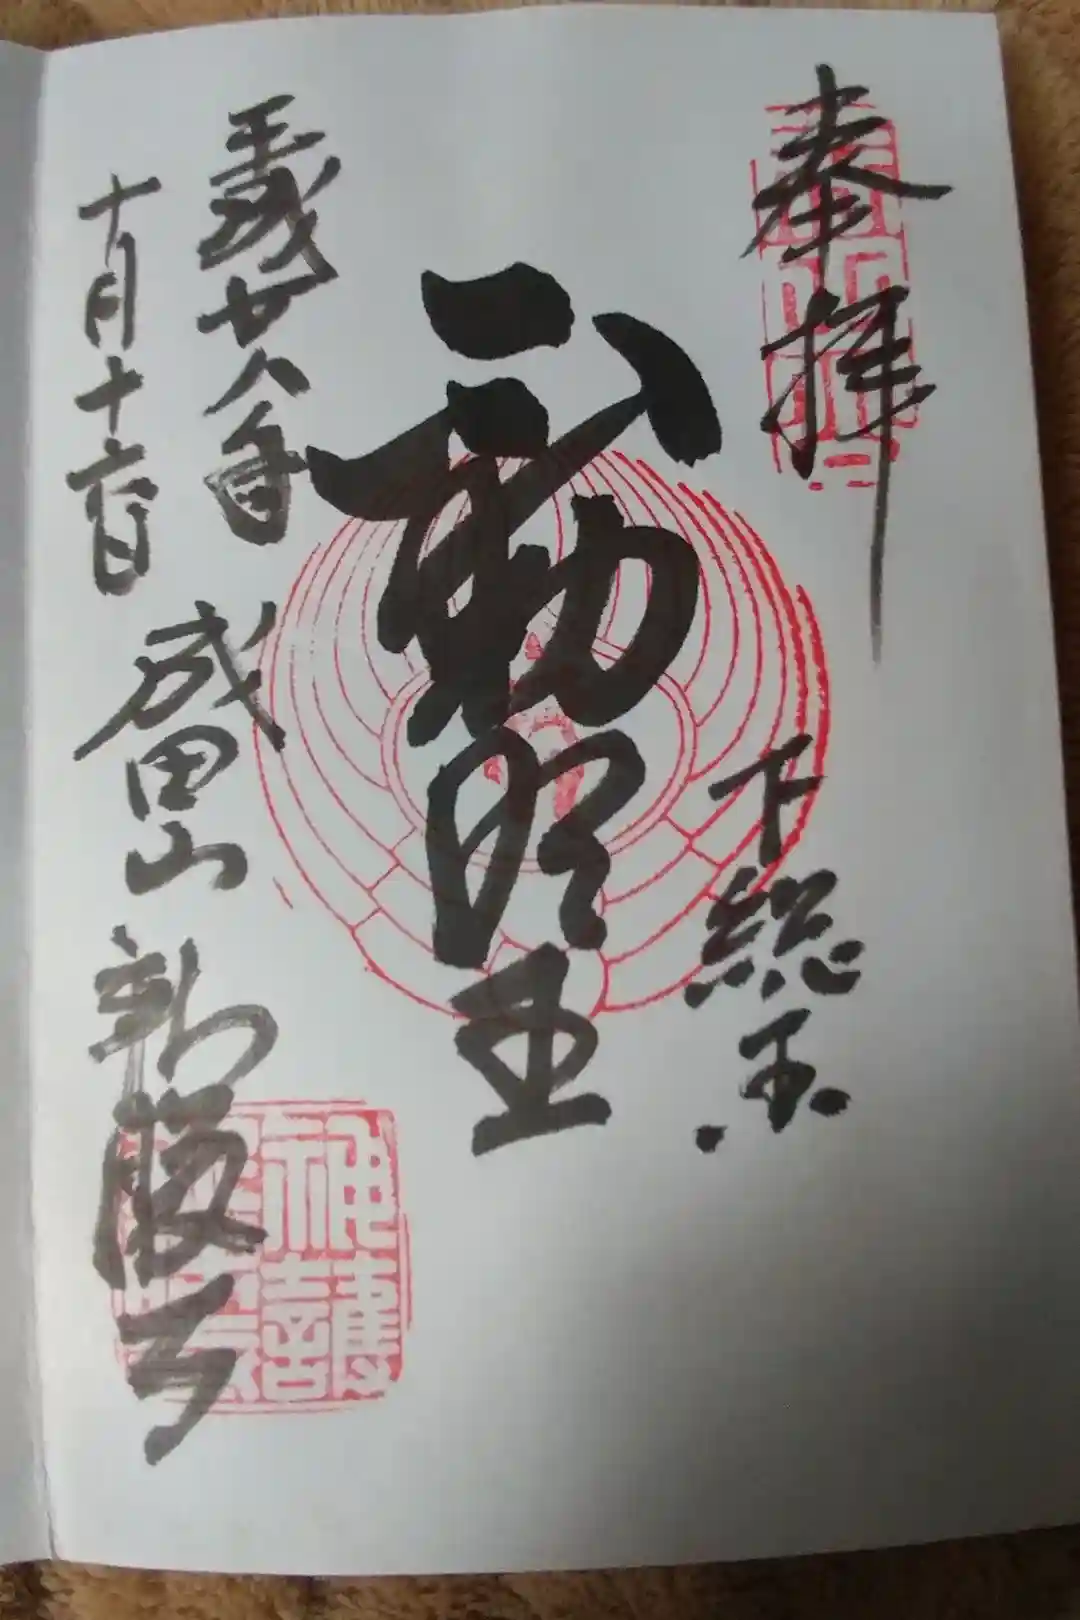 奉拝
下総国
不動明王
平成廿八年
十月十六日
成田山新勝寺
神護